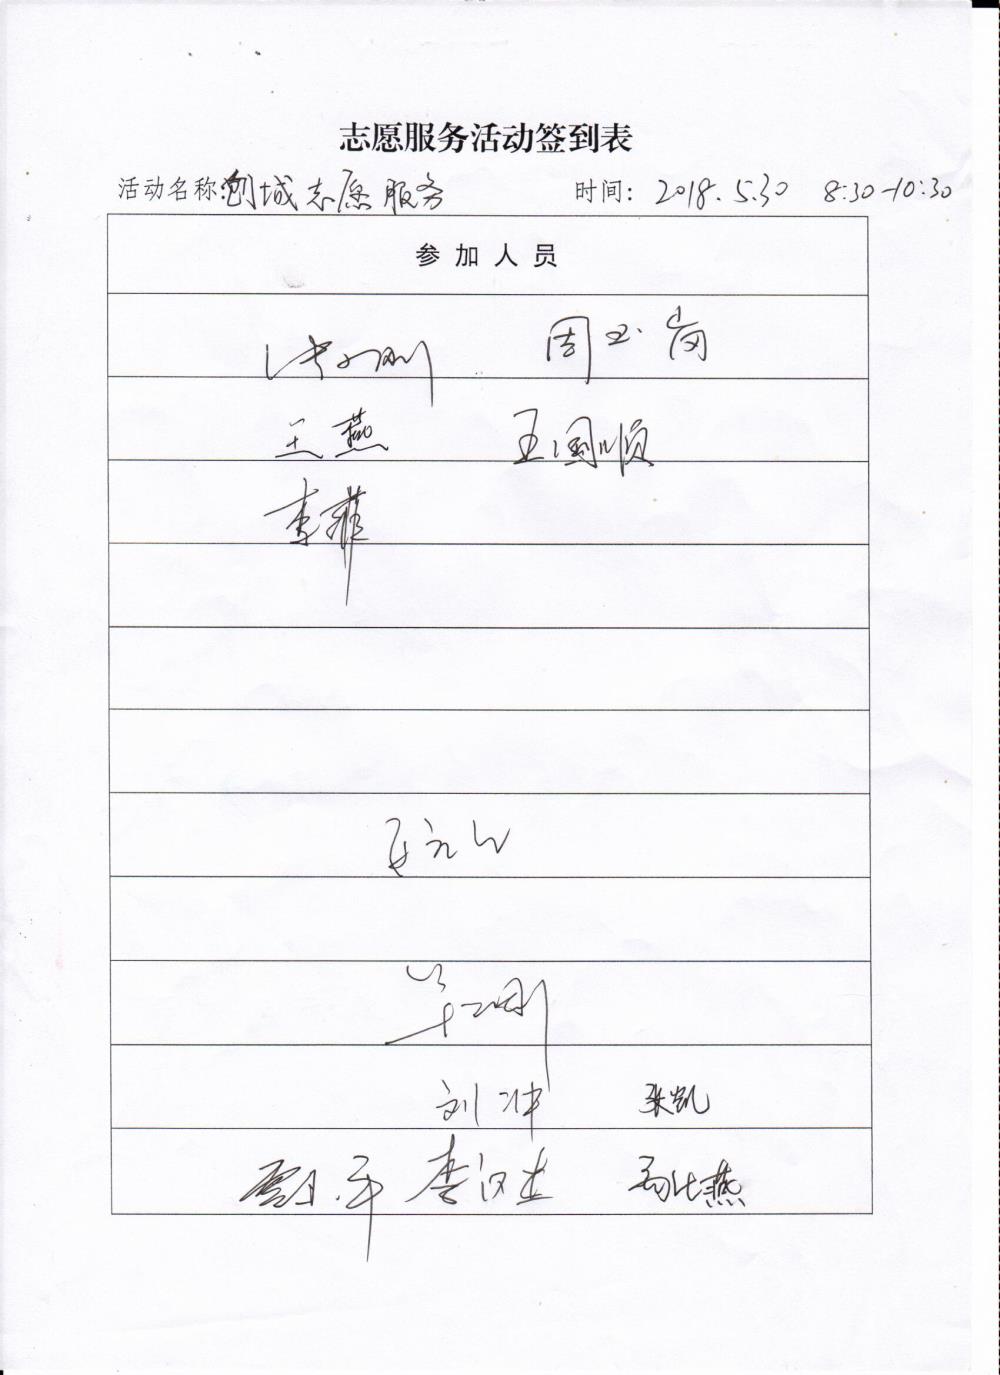 志愿服务活动签到表
活动名称:创城志愿服务 时间: 2018.5.30 8:30-10:30
参加人员
周玉岗
王燕 王国顺
李菲
刘冲 张凯
李汉杰